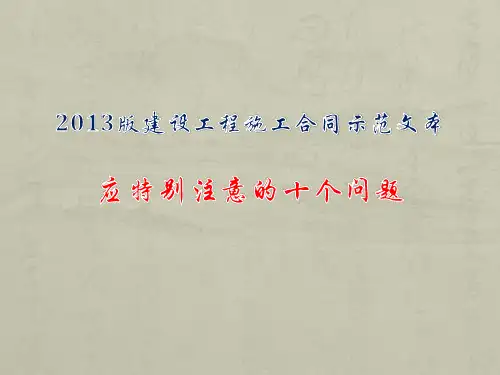 2013版建设工程施工合同示范文本
应特别注意的十个问题